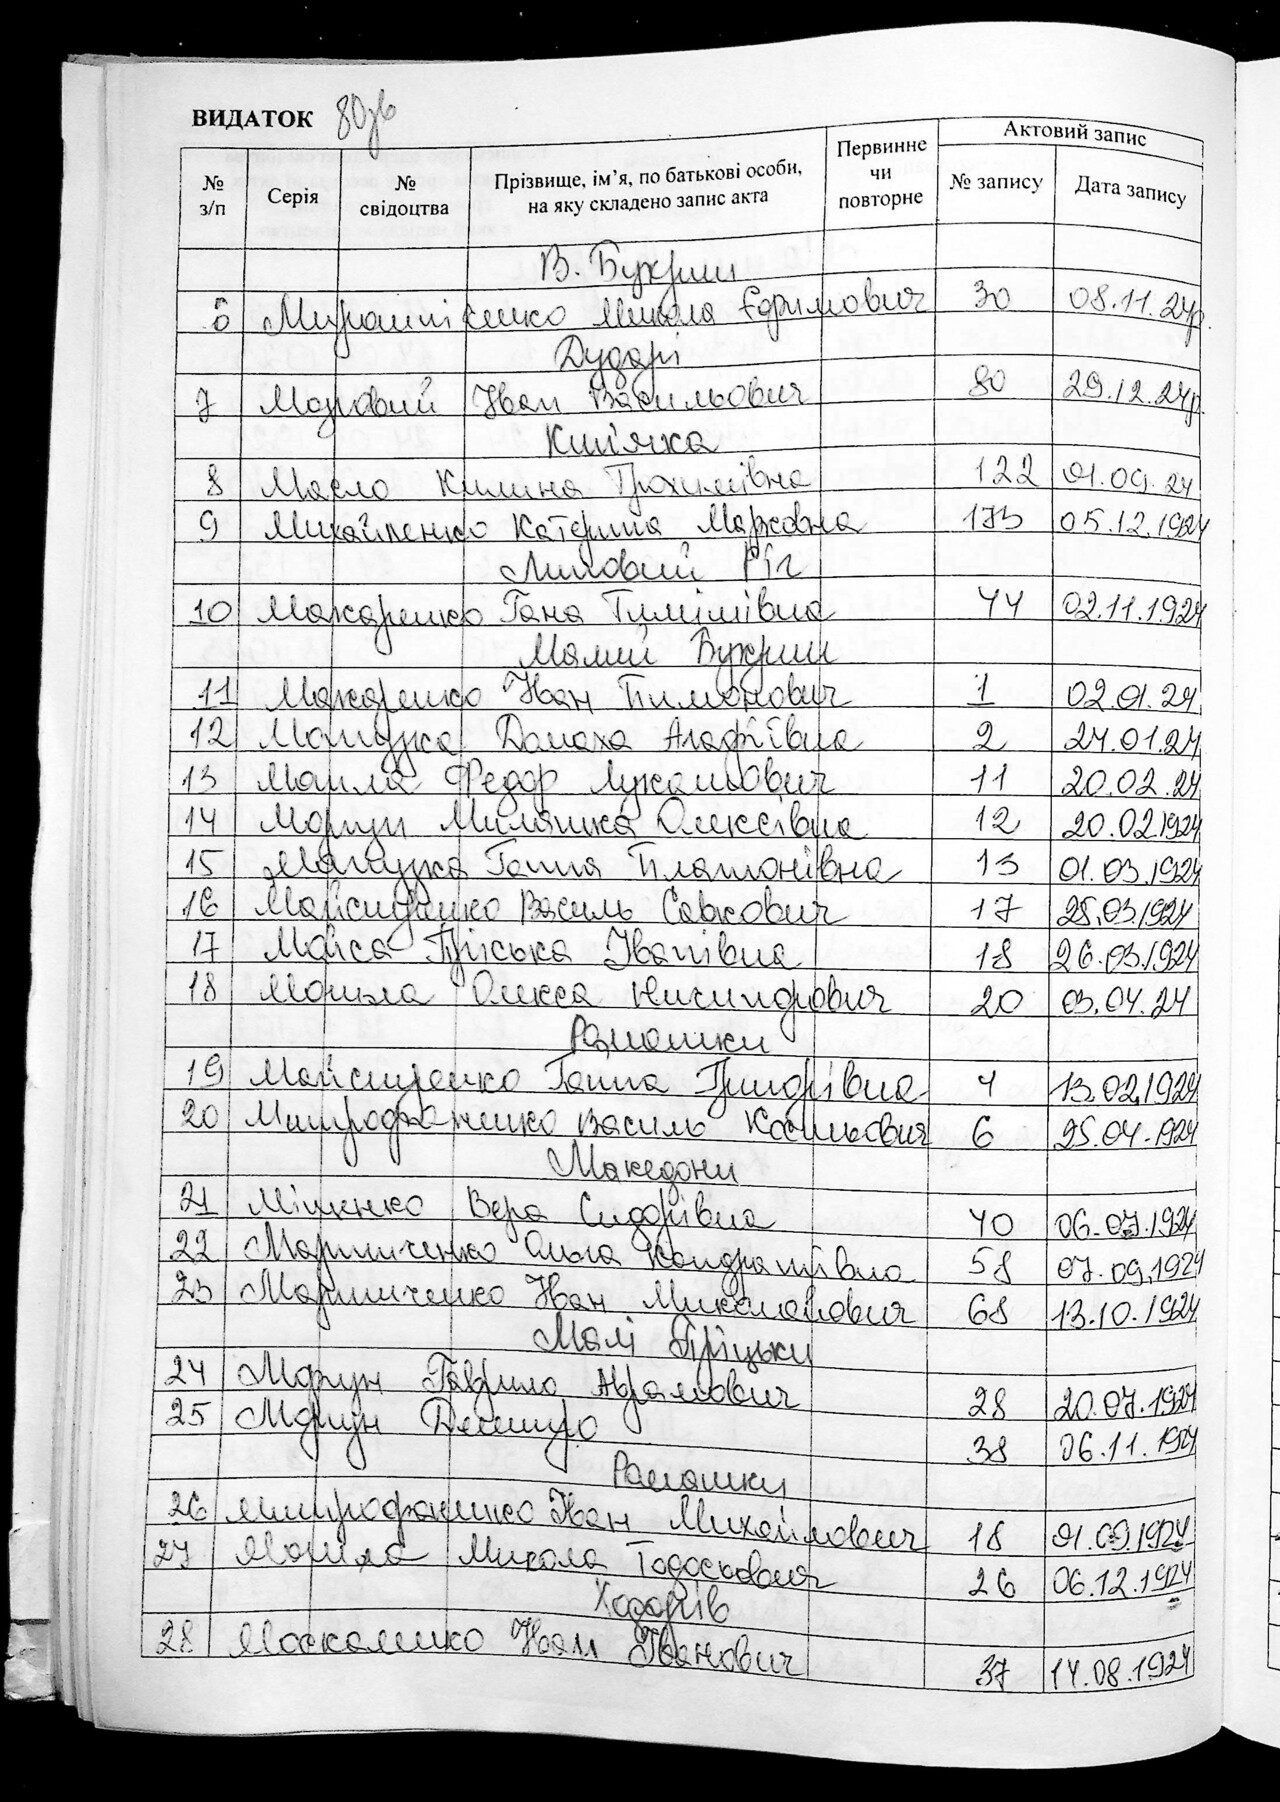 ВИДАТОК 80зв
№ з/п Серія № свідоцтва Прізвище, ім’я, по батькові особи, на яку складено запис акта Первинне чи повторне Актовий запис № запису Дата запису
В. Букрин
6 Микола Єфримович 30 08.11.24р.
Дударі
7 Мазовий Іван Васильович 80 29.12.24р.
Кип'ячка
8 Масло Килина Трохимівна 122 01.09.24
9 Михайленко Катерина Марковна 173 05.12.1924
Липовий Ріг
10 Макаренко Гана Тимішівна 44 02.11.1924
Малий Букрин
11 Макаренко Іван Пимонович 1 02.01.24
12 Мацюка Домаха Агафіївна 2 24.01.24
13 Моцла Федор Лукашович 11 20.02.24
14 Моргун Миляшка Олексівна 12 20.02.1924
15 Мацюка Ганна Платонівна 13 01.03.1924
16 Майстренко Василь Савкович 17 25.03.1924
17 Мойса Пріська Іванівна 18 26.03.1924
18 Могила Олекса Ничипорович 20 03.04.24
Ромашки
19 Майстренко Ганна Григорівна 4 13.02.1924
20 Митрофаненко Василь Косьмович 6 25.04.1924
Македони
21 Міщенко Вера Сидорівна 40 06.07.1924
22 Мариниченко Ольга Кондратівна 58 07.09.1924
23 Мариниченко Іван Миколайович 68 13.10.1924
Малі Пріцьки
24 Моргун Гаврило Аврамович 28 20.07.1924
25 Моргун Дмитро 38 06.11.1924
Ромашки
26 Митрофаненко Іван Михайлович 18 01.09.1924
27 Могила Микола Тодоскович 26 06.12.1924
Ходорів
28 Москаленко Іван Іванович 37 14.08.1924